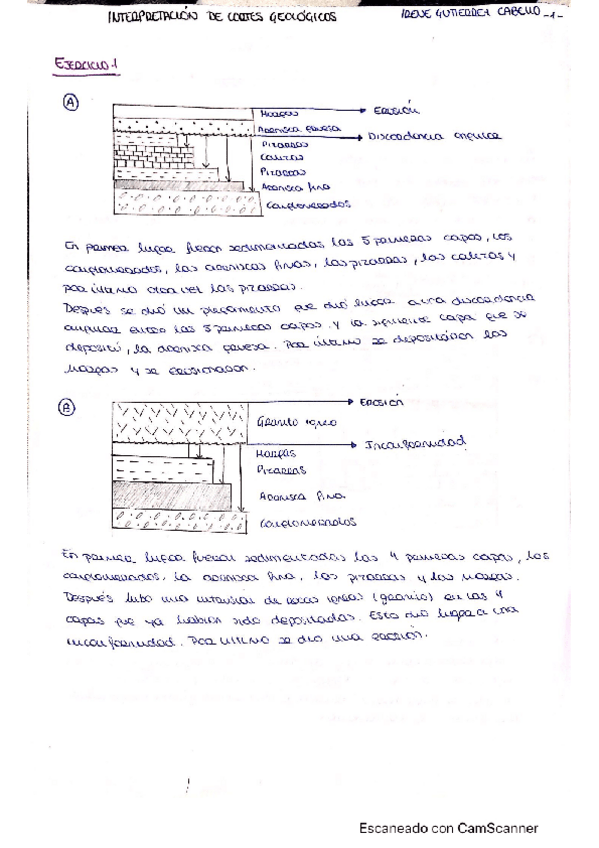 INTERPRETACIÓN DE CORTES GEOLÓGICOS
IRENE GUTIERREZ CABELLO -1-
EJERCICIO 1
A
Margas
Erosión
Arenisca gruesa
Discordancia angular
Pizarras
Calizas
Pizarras
Arenisca fina
Conglomerados
En primer lugar fueron sedimentadas las 5 primeras capas, los
conglomerados, las areniscas finas, las pizarras, las calizas y
por último otra vez las pizarras.
Después se dió un plegamiento que dió lugar a una discordancia
angular entre las 5 primeras capas y la siguiente capa que se
depositó, la arenisca gruesa. Por último se depositaron las
Margas y se erosionaron.
B
Erosión
Granito ígneo
Inconformidad
Margas
Pizarras
Arenisca fina
Conglomerados
En primer lugar fueron sedimentadas las 4 primeras capas, los
conglomerados, la arenisca fina, las pizarras y las margas.
Después hubo una intrusión de rocas ígneas (granito) en las 4
capas que ya habían sido depositadas. Esto dió lugar a una
inconformidad. Por último se dio una erosión.
Escaneado con CamScanner